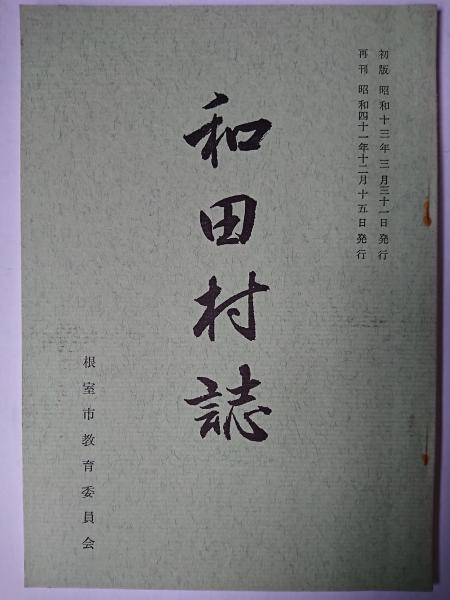 初版 昭和十三年三月三十一日発行
再刊 昭和四十一年十二月十五日発行
和田村誌
根室市教育委員会